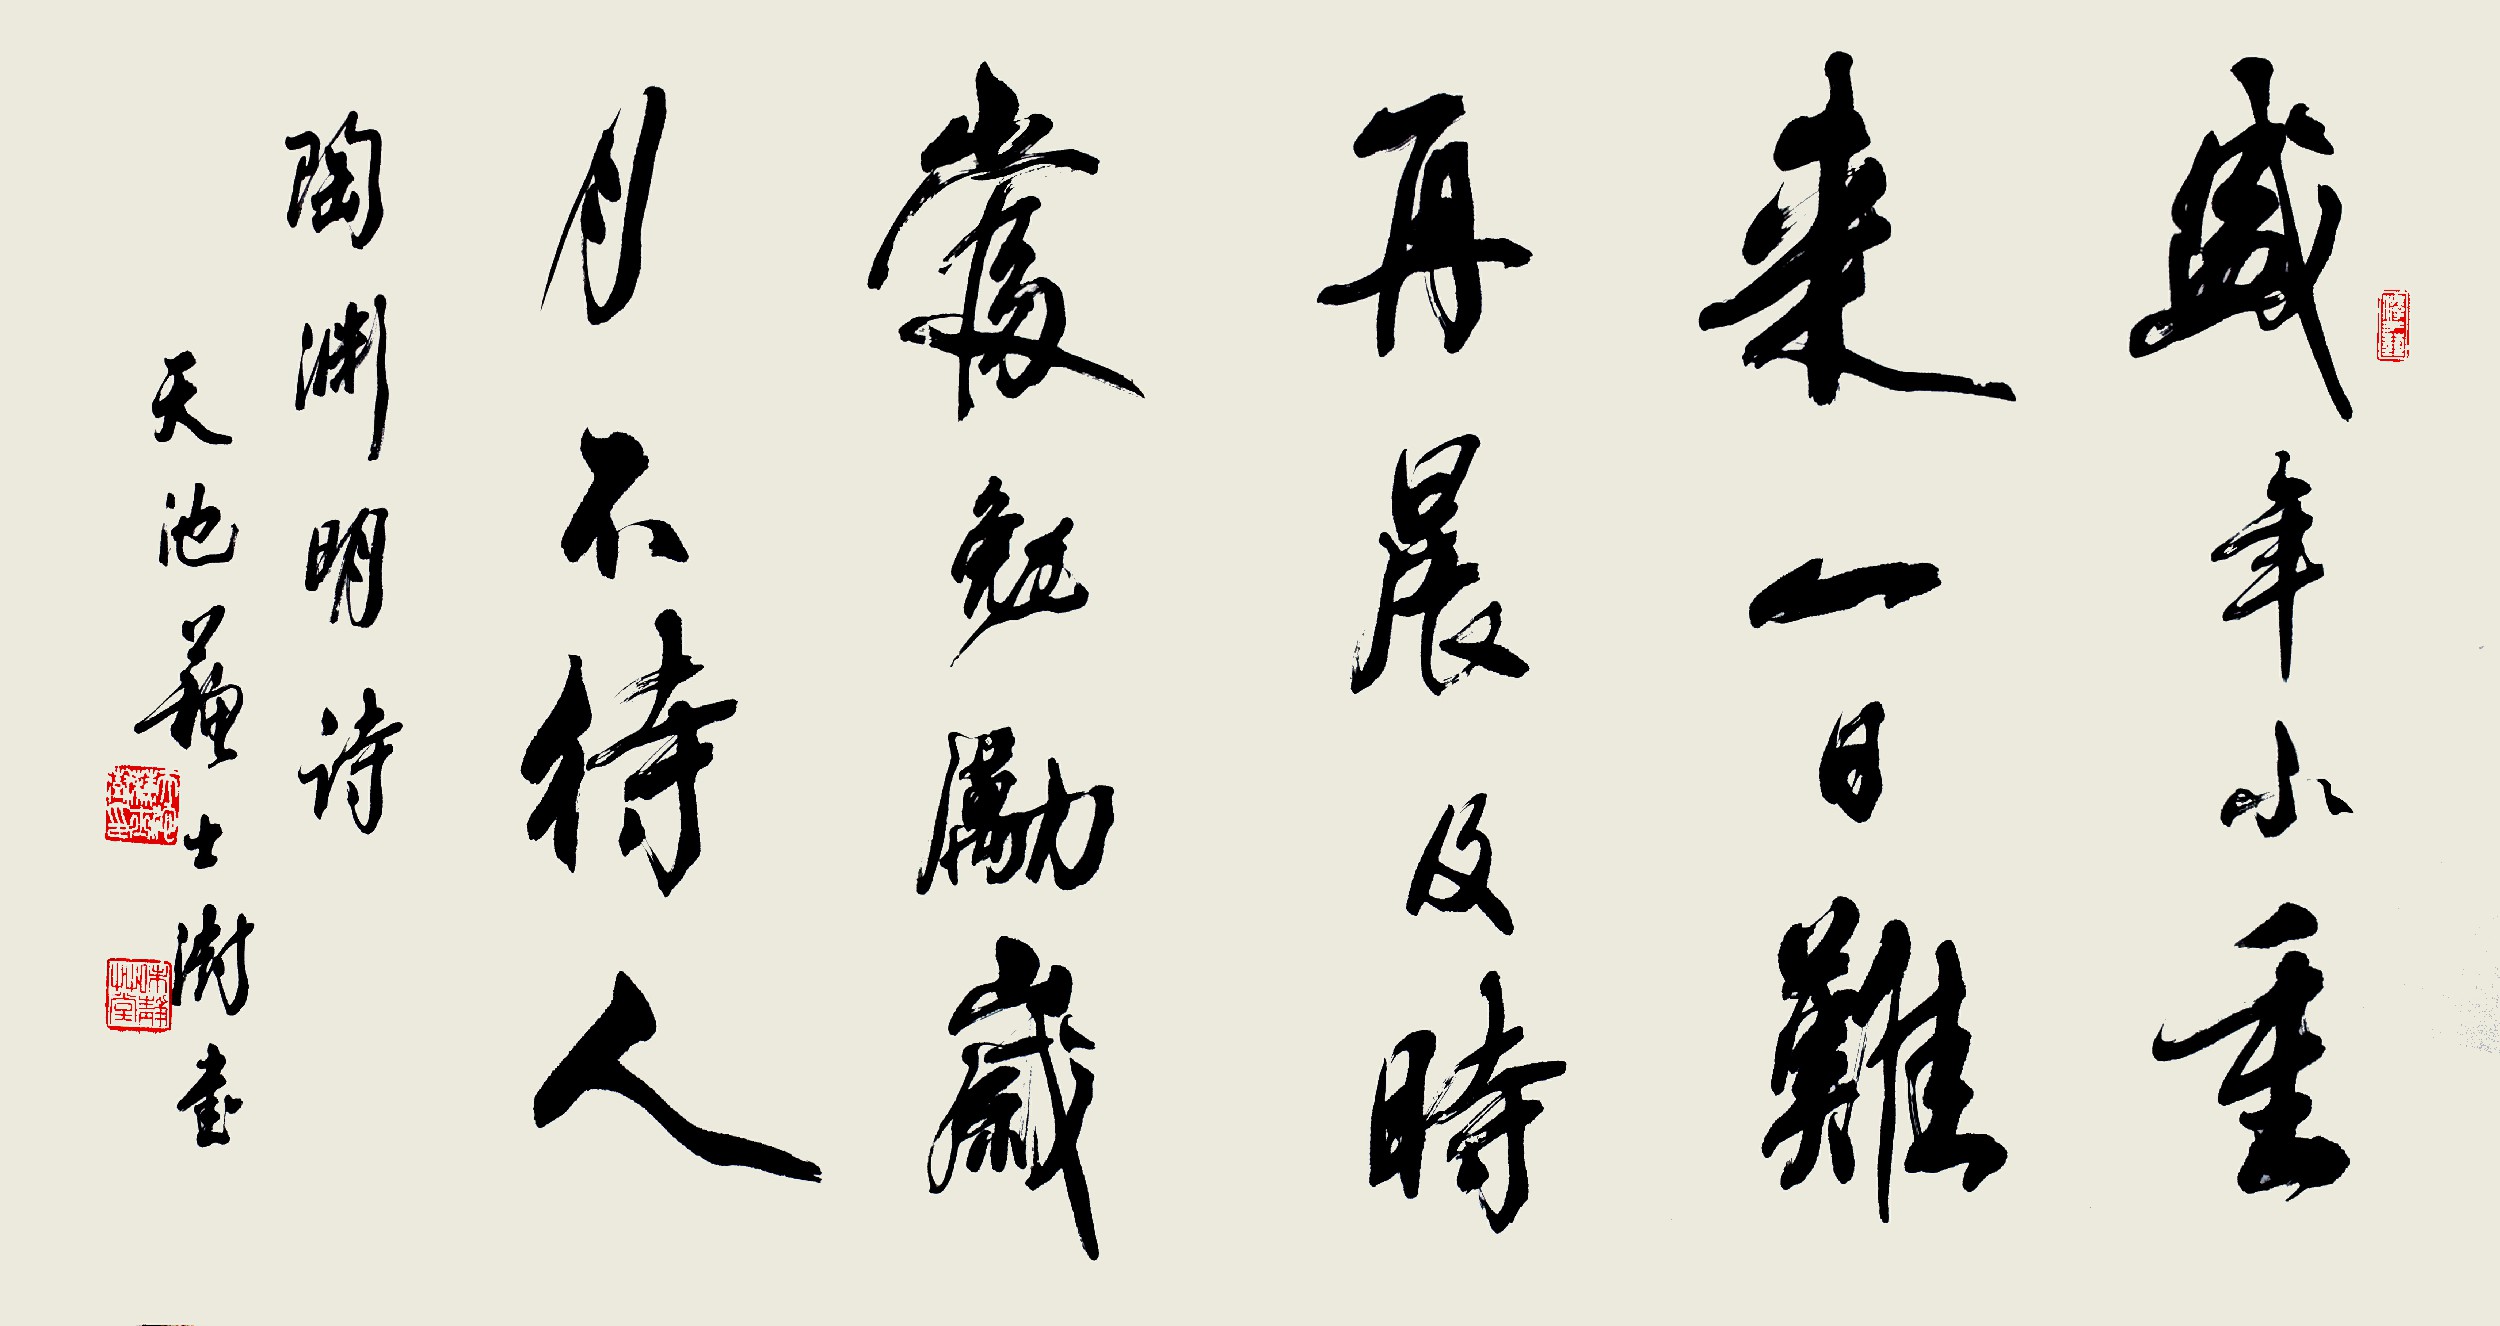 盛年不重
來一日難
再晨及時
當勉勵歲
月不待人
陶淵明詩
天池士